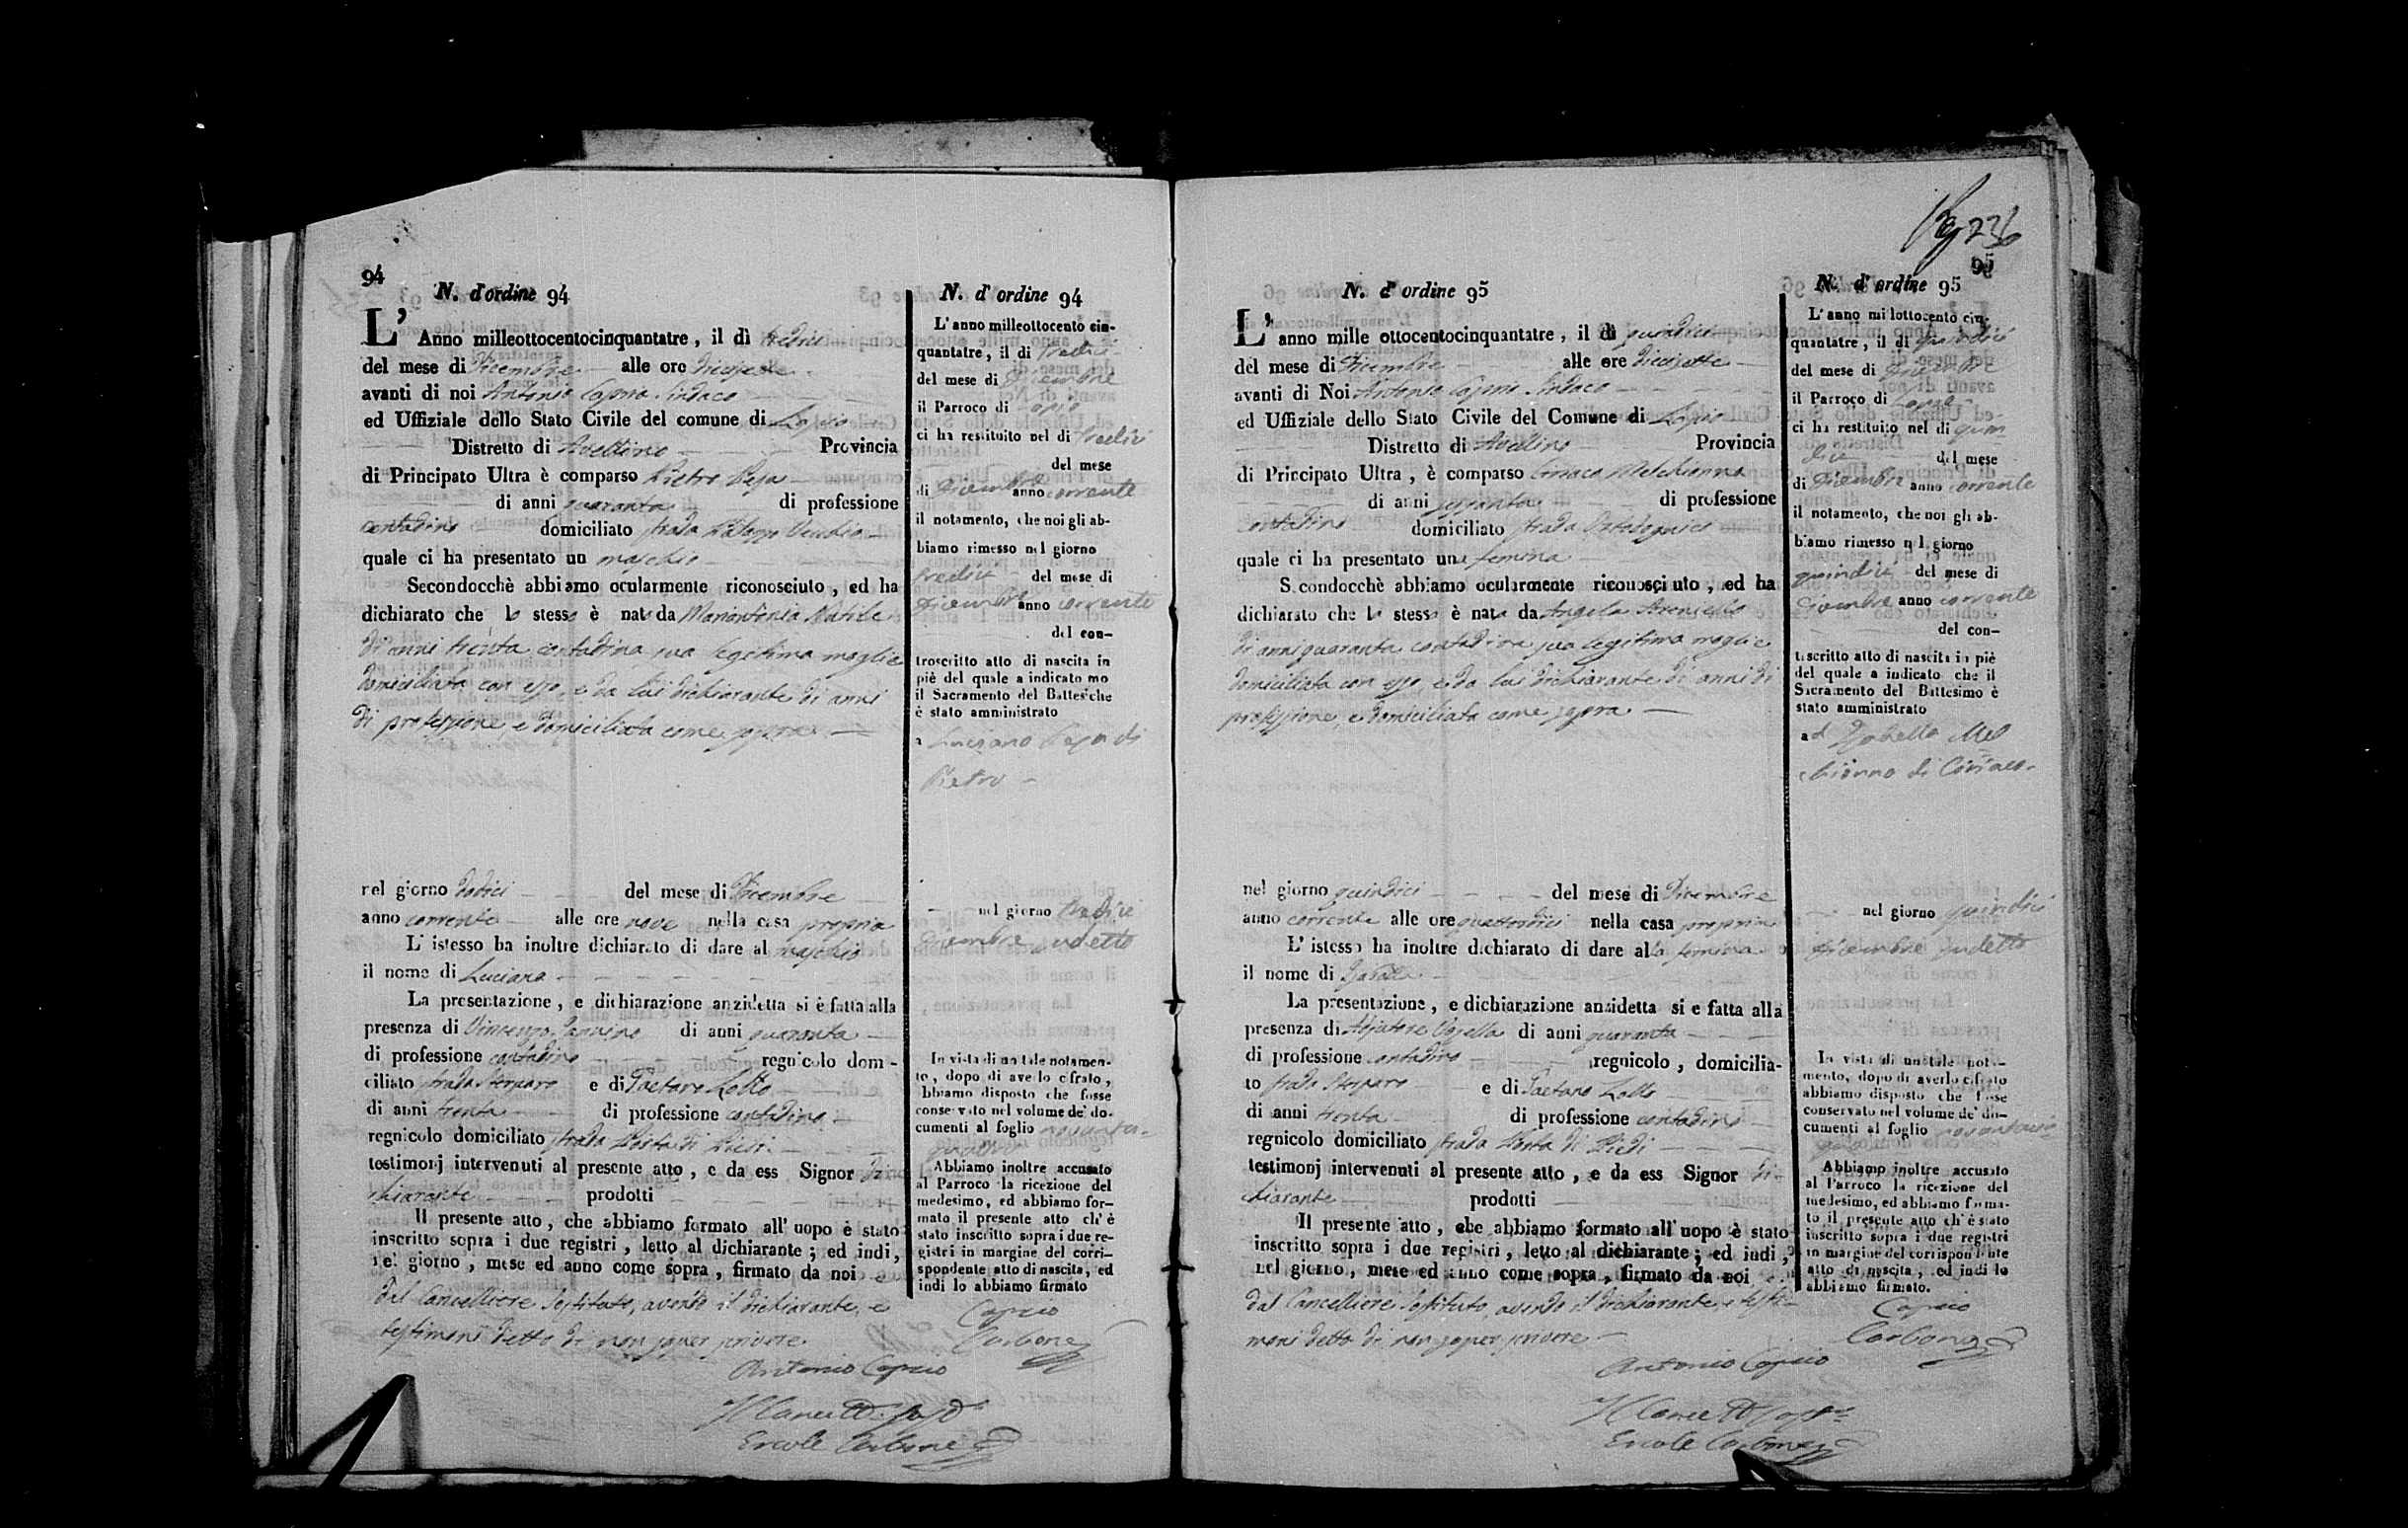 94
N. d'ordine 94
L' Anno milleottocentocinquantatre, il dì tredici
del mese di Dicembre alle ore diecisette
avanti di noi Antonio Caprio Sindaco
ed Uffiziale dello Stato Civile del comune di Lapio
Distretto di Avellino Provincia
di Principato Ultra è comparso Pietro
di anni quaranta di professione
contadino domiciliato strada Palazzo Vecchio
quale ci ha presentato un maschio
Secondocchè abbiamo ocularmente riconosciuto, ed ha
dichiarato che lo stesso è nato da Mariantonia Natile
di anni trenta contadina sua legitima moglie
domiciliata con esso, e da lui dichiarante di anni
di professione, e domiciliata come sopra
nel giorno dodici del mese di Dicembre
anno corrente alle ore nove nella casa propria
L' istesso ha inoltre dichiarato di dare al maschio
il nome di Luciano
La presentazione, e dichiarazione anzidetta si è fatta alla
presenza di Vincenzo di anni quaranta
di professione contadino regnicolo domi-
ciliato strada e di Gaetano Lotto
di anni trenta di professione contadino
regnicolo domiciliato strada Costa di
testimonj intervenuti al presente atto, e da ess Signor di
chiarante prodotti
Il presente atto, che abbiamo formato all' uopo è stato
inscritto sopra i due registri, letto al dichiarante; ed indi,
nel giorno, mese ed anno come sopra, firmato da noi e
dal Cancelliere Sostituto, avendo il dichiarante, e
testimoni detto di non saper scrivere
Antonio Caprio
Il Cancell. Sost.
Ercole Carbone
N. d' ordine 94
L' anno milleottocento cin-
quantatre, il di tredici
del mese di Dicembre
il Parroco di Lapio
ci ha restituito nel di tredici
del mese
di Dicembre anno corrente
il notamento, che noi gli ab-
biamo rimesso nel giorno
tredici del mese di
Dicembre anno corrente
del con-
troscritto atto di nascita in
piè del quale a indicato mo
il Sacramento del Battes'che
è stato amministrato
a Luciano di
Pietro
nel giorno tredici
Dicembre sudetto
In vista di un tale notamen-
to, dopo di averlo cifrato,
bbiamo disposto che fosse
conservato nel volume de' do-
cumenti al foglio novanta-
quattro
Abbiamo inoltre accusato
al Parroco la ricezione del
medesimo, ed abbiamo for-
mato il presente atto ch' è
stato inscritto sopra i due re-
gistri in margine del corri-
spondente atto di nascita, ed
indi lo abbiamo firmato
Caprio
Carbone
236
95
N. d' ordine 95
L' anno mille ottocentocinquantatre, il di quindici
del mese di Dicembre alle ore diecisette
avanti di Noi Antonio Caprio Sindaco
ed Uffiziale dello Stato Civile del Comune di Lapio
Distretto di Avellino Provincia
di Principato Ultra, è comparso Ciriaco Melchionna
di anni sessanta di professione
contadino domiciliato strada
quale ci ha presentato una femina
Secondocchè abbiamo ocularmente riconosciuto, ed ha
dichiarato che la stessa è nata da Angela
di anni quaranta contadina sua legitima moglie
domiciliata con esso, e da lui dichiarante di anni di
professione, e domiciliata come sopra
nel giorno quindici del mese di Dicembre
anno corrente alle ore quattordici nella casa propria
L' istesso ha inoltre dichiarato di dare alla femina
il nome di Isabella
La presentazione, e dichiarazione anzidetta si e fatta alla
presenza di di anni quaranta
di professione contadino regnicolo, domicilia-
to strada e di Gaetano Lotto
di anni trenta di professione contadino
regnicolo domiciliato strada Costa di
testimonj intervenuti al presente atto, e da ess Signor di-
chiarante prodotti
Il presente atto, che abbiamo formato all' uopo è stato
inscritto sopra i due registri, letto al dichiarante; ed indi,
nel giorno, mese ed anno come sopra, firmato da noi e
dal Cancelliere Sostituto, avendo il dichiarante, e testi-
moni detto di non saper scrivere
Antonio Caprio
Il Cancell. Sost.
Ercole Carbone
N. d' ordine 95
L' anno millottocento cin-
quantatre, il di quindici
del mese di Dicembre
il Parroco di Lapio
ci ha restituito nel di quin
dici del mese
di Dicembre anno corrente
il notamento, che noi gli ab-
biamo rimesso nel giorno
quindici del mese di
Dicembre anno corrente
del con-
troscritto atto di nascita in piè
del quale a indicato che il
Sacramento del Battesimo è
stato amministrato
ad Isabella Mel
chionna di Ciriaco
nel giorno quindici
Dicembre sudetto
In vista di un tale nota-
mento, dopo di averlo cifrato
abbiamo disposto che fosse
conservato nel volume de' do-
cumenti al foglio
Abbiamo inoltre accusato
al Parroco la ricezione del
medesimo, ed abbiamo forma-
to il presente atto ch' è stato
inscritto sopra i due registri
in margine del corrispondente
atto di nascita, ed indi lo
abbiamo firmato.
Caprio
Carbone